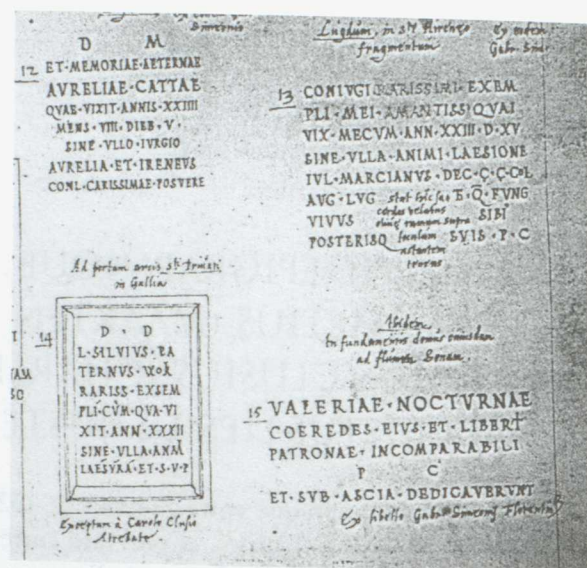 Simeonis
D M
12 ET·MEMORIAE·AETERNAE
AVRELIAE·CATTAE
QVAE·VIXIT·ANNIS·XXIIII
MENS·VIII·DIEB·V·
SINE·VLLO·IVRGIO
AVRELIA·ET·IRENEVS
CONL·CARISSIMAE·POSVERE
Ad portam arcis
in Gallia
14
D · D
L·SILVIVS·PA
TERNVS·VXOR
RARISS·EXSEM
PLI·CVM·QVA·VI
XIT·ANN·XXXII
SINE·VLLA·ANM
LAESVRA·ET·S·V·P
Exceptum à Carolo Clusio
Atrebate.
Lugduni, in
fragmentum
Ex eodem
Gab. Sim.
13 CONIVGI RARISSIMI·EXEM
PLI·MEI·AMANTISSI QVAI
VIX·MECVM·ANN·XXIII·D·XV
SINE·VLLA·ANIMI·LAESIONE
IVL·MARCIANVS·DEC·C·C·C·L
AVG·LVG FVNG
VIVVS SIBI
POSTERISQ SVIS·P·C
Ibidem
In fundamentis domus cuiusdam
ad flumen Sonam.
15 VALERIAE·NOCTVRNAE
COEREDES·EIVS·ET·LIBERT
PATRONAE·INCOMPARABILI
P C
ET·SVB·ASCIA·DEDICAVERVNT
Ex libello Gabrielis Simeonij Florentini